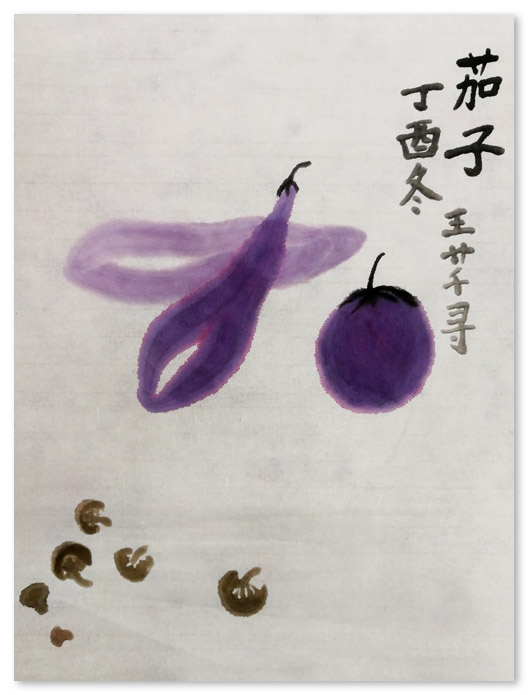 茄子
丁酉冬
王芊寻